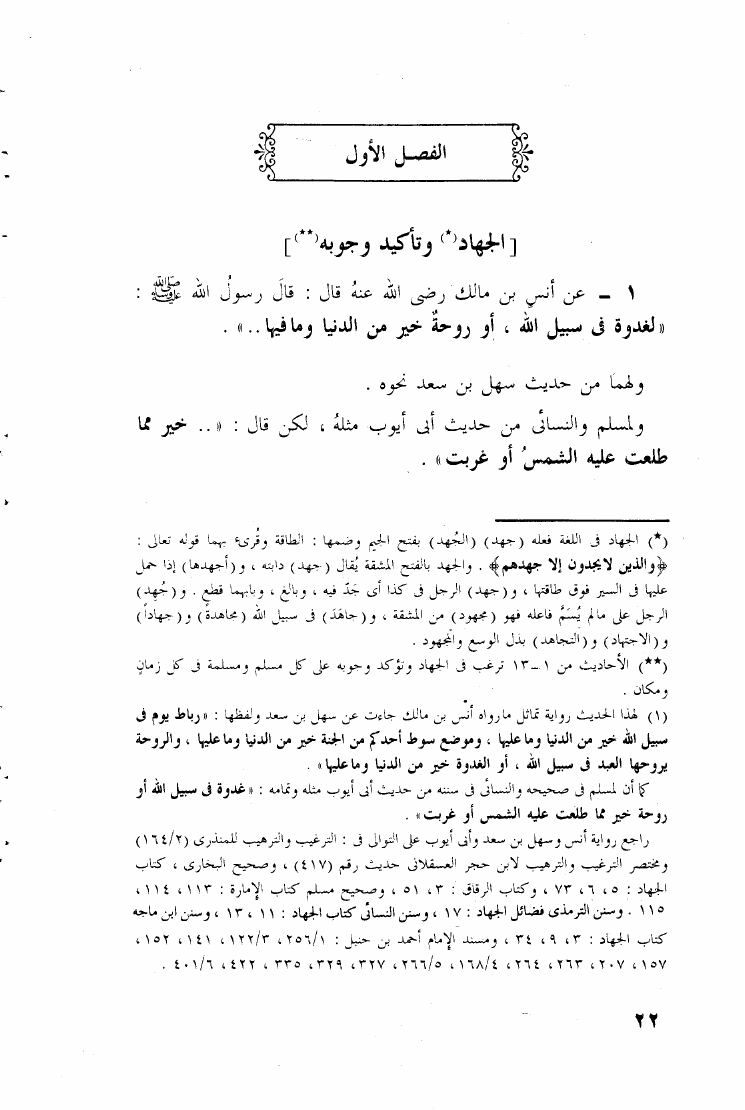 الفصل الأول
[الجهاد(*) وتأكيد وجوبه(**)]
١ - عن أنسِ بن مالك رضى الله عنهُ قال : قالَ رسولُ الله ﷺ :
« لغدوة فى سبيل الله ، أو روحةٌ خير من الدنيا ومافيها .. » .
ولهما من حديث سهل بن سعد نحوه .
ولمسلم والنسائى من حديث أبى أيوب مثلهُ ، لكن قال : « .. خير مما
طلعت عليه الشمسُ أو غربت » .
(*) الجهاد فى اللغة فعله (جهد) (الجُهد) بفتح الجيم وضمها : الطاقة وقُرىء بهما قوله تعالى :
﴿والذين لايجدون إلا جهدهم﴾ . والجهد بالفتح المشقة يُقال (جهد) دابته ، و(أجهدها) إذا حمل
عليها فى السير فوق طاقتها ، و(جهد) الرجل فى كذا أى جَدّ فيه ، وبالغ ، وبابهما قطع . و(جُهد)
الرجل على مالم يُسَمَّ فاعله فهو (مجهود) من المشقة ، و(جاهَدَ) فى سبيل الله (مجاهدة) و(جهاداً)
و(الاجتهاد) و(التجاهد) بذل الوسع والمجهود .
(**) الأحاديث من ١-١٣ ترغب فى الجهاد وتؤكد وجوبه على كل مسلم ومسلمة فى كل زمانٍ
ومكان .
(١) لهذا الحديث رواية تماثل مارواه أنس بن مالك جاءت عن سهل بن سعد ولفظها : « رباط يوم فى
سبيل الله خير من الدنيا وماعليها ، وموضع سوط أحدكم من الجنة خير من الدنيا وماعليها ، والروحة
يروحها العبد فى سبيل الله ، أو الغدوة خير من الدنيا وماعليها » .
كما أن لمسلم فى صحيحه والنسائى فى سننه من حديث أبى أيوب مثله وتمامه : « غدوة فى سبيل الله أو
روحة خير مما طلعت عليه الشمس أو غربت » .
راجع رواية أنس وسهل بن سعد وأبى أيوب على التوالى فى : الترغيب والترهيب للمنذرى (١٦٤/٢)
ومختصر الترغيب والترهيب لابن حجر العسقلانى حديث رقم (٤١٧) ، وصحيح البخارى ، كتاب
الجهاد : ٥ ، ٦ ، ٧٣ ، وكتاب الرقاق : ٣ ، ٥١ ، وصحيح مسلم كتاب الإمارة : ١١٣ ، ١١٤ ،
١١٥ . وسنن الترمذى فضائل الجهاد : ١٧ ، وسنن النسائى كتاب الجهاد : ١١ ، ١٣ ، وسنن ابن ماجه
كتاب الجهاد : ٣ ، ٩ ، ٣٤ ، ومسند الإمام أحمد بن حنبل : ٢٥٦/١ ، ١٢٢/٣ ، ١٤١ ، ١٥٢ ،
١٥٧ ، ٢٠٧ ، ٢٦٣ ، ٢٦٤ ، ١٦٨/٤ ، ٢٦٦/٥ ، ٣٢٧ ، ٣٢٩ ، ٣٣٥ ، ٤٢٢ ، ٤٠١/٦ .
٢٢